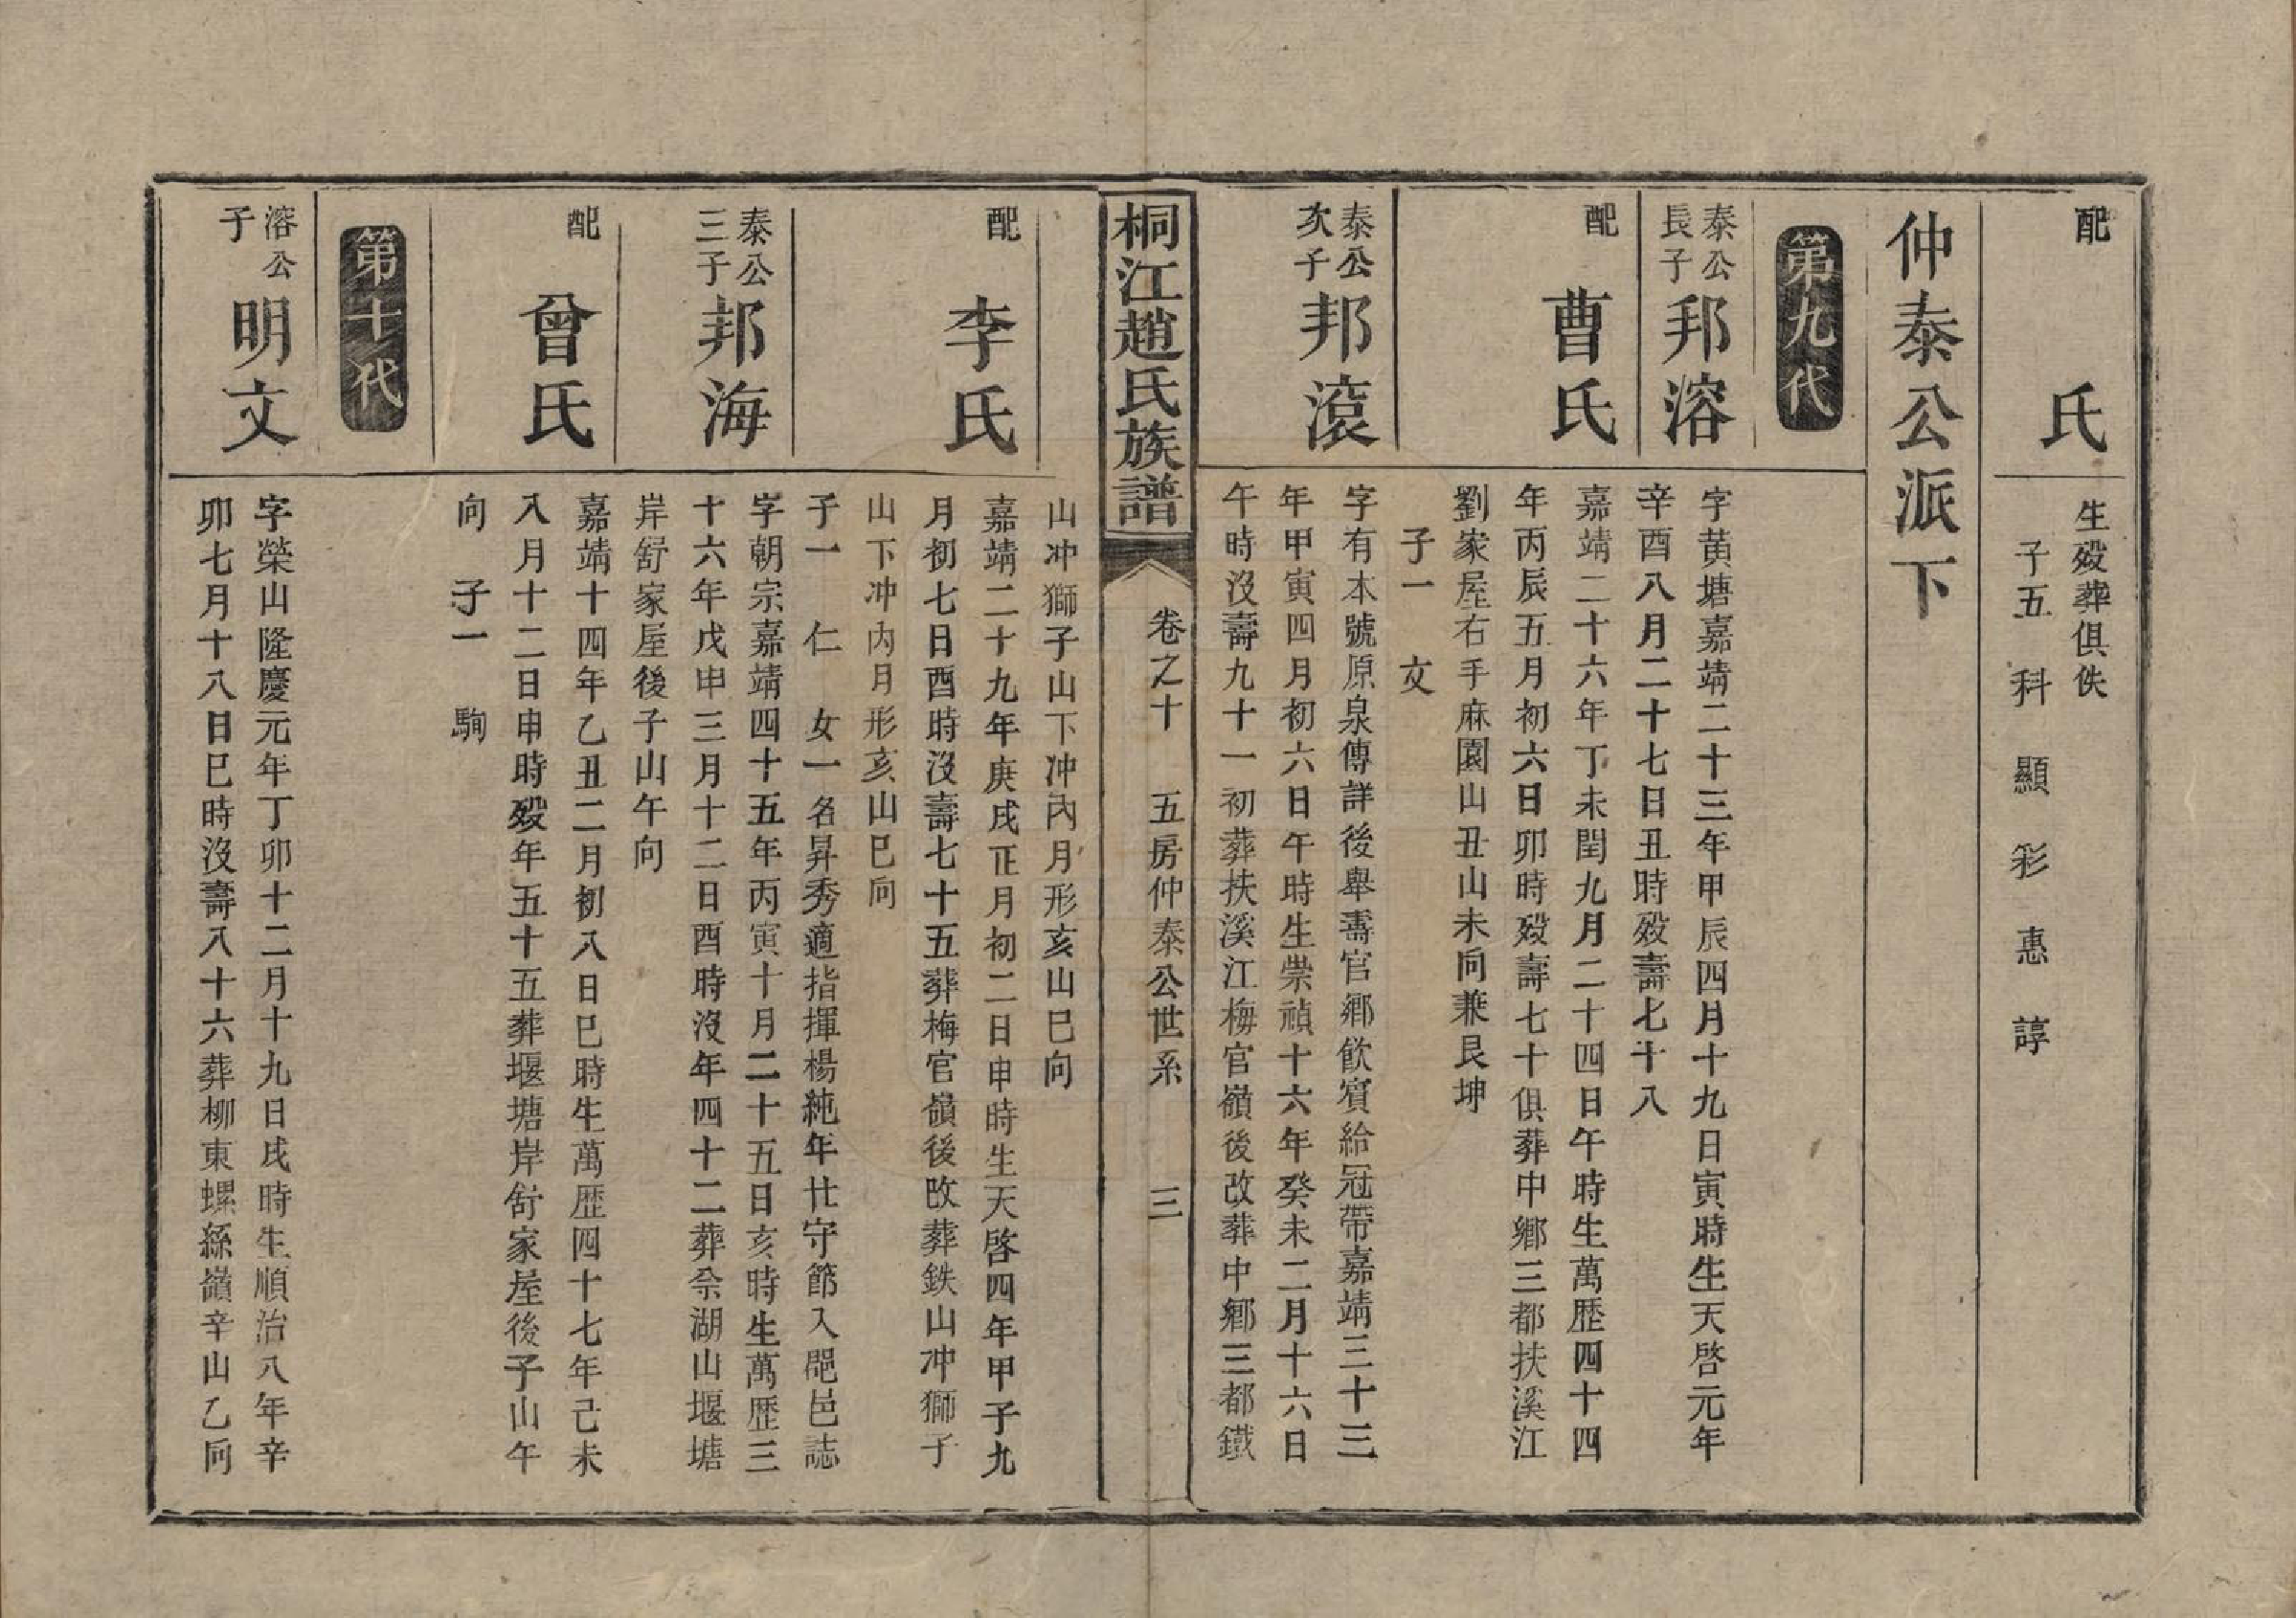 配
氏
生殁葬俱佚
子五　科　顯　彩　惠　諄
仲泰公派下
第九代
泰公長子
邦溶
字黄塘嘉靖二十三年甲辰四月十九日寅時生天啓元年
辛酉八月二十七日丑時殁壽七十八
配
曹氏
嘉靖二十六年丁未閏九月二十四日午時生萬歷四十四
年丙辰五月初六日卯時殁壽七十俱葬中鄉三都扶溪江
劉家屋右手麻園山丑山未向兼艮坤
子一　文
泰公次子
邦滾
字有本號原泉傳詳後舉壽官鄉飲賓給冠帶嘉靖三十三
年甲寅四月初六日午時生崇禎十六年癸未二月十六日
午時沒壽九十一初葬扶溪江梅官嶺後改葬中鄉三都鐵
桐江趙氏族譜
卷之十　五房仲泰公世系　三
山冲獅子山下冲內月形亥山巳向
配
李氏
嘉靖二十九年庚戌正月初二日申時生天啓四年甲子九
月初七日酉時沒壽七十五葬梅官嶺後改葬鉄山冲獅子
山下冲內月形亥山巳向
子一　仁　女一名昇秀適指揮楊純年廿守節入郡邑誌
泰公三子
邦海
字朝宗嘉靖四十五年丙寅十月二十五日亥時生萬歷三
十六年戊申三月十二日酉時沒年四十二葬佘湖山堰塘
岸舒家屋後子山午向
配
曾氏
嘉靖十四年乙丑二月初八日巳時生萬歷四十七年己未
八月十二日申時殁年五十五葬堰塘岸舒家屋後子山午
向　子一　駒
第十代
溶公子
明文
字榮山隆慶元年丁卯十二月十九日戌時生順治八年辛
卯七月十八日巳時沒壽八十六葬柳東螺絲嶺辛山乙向